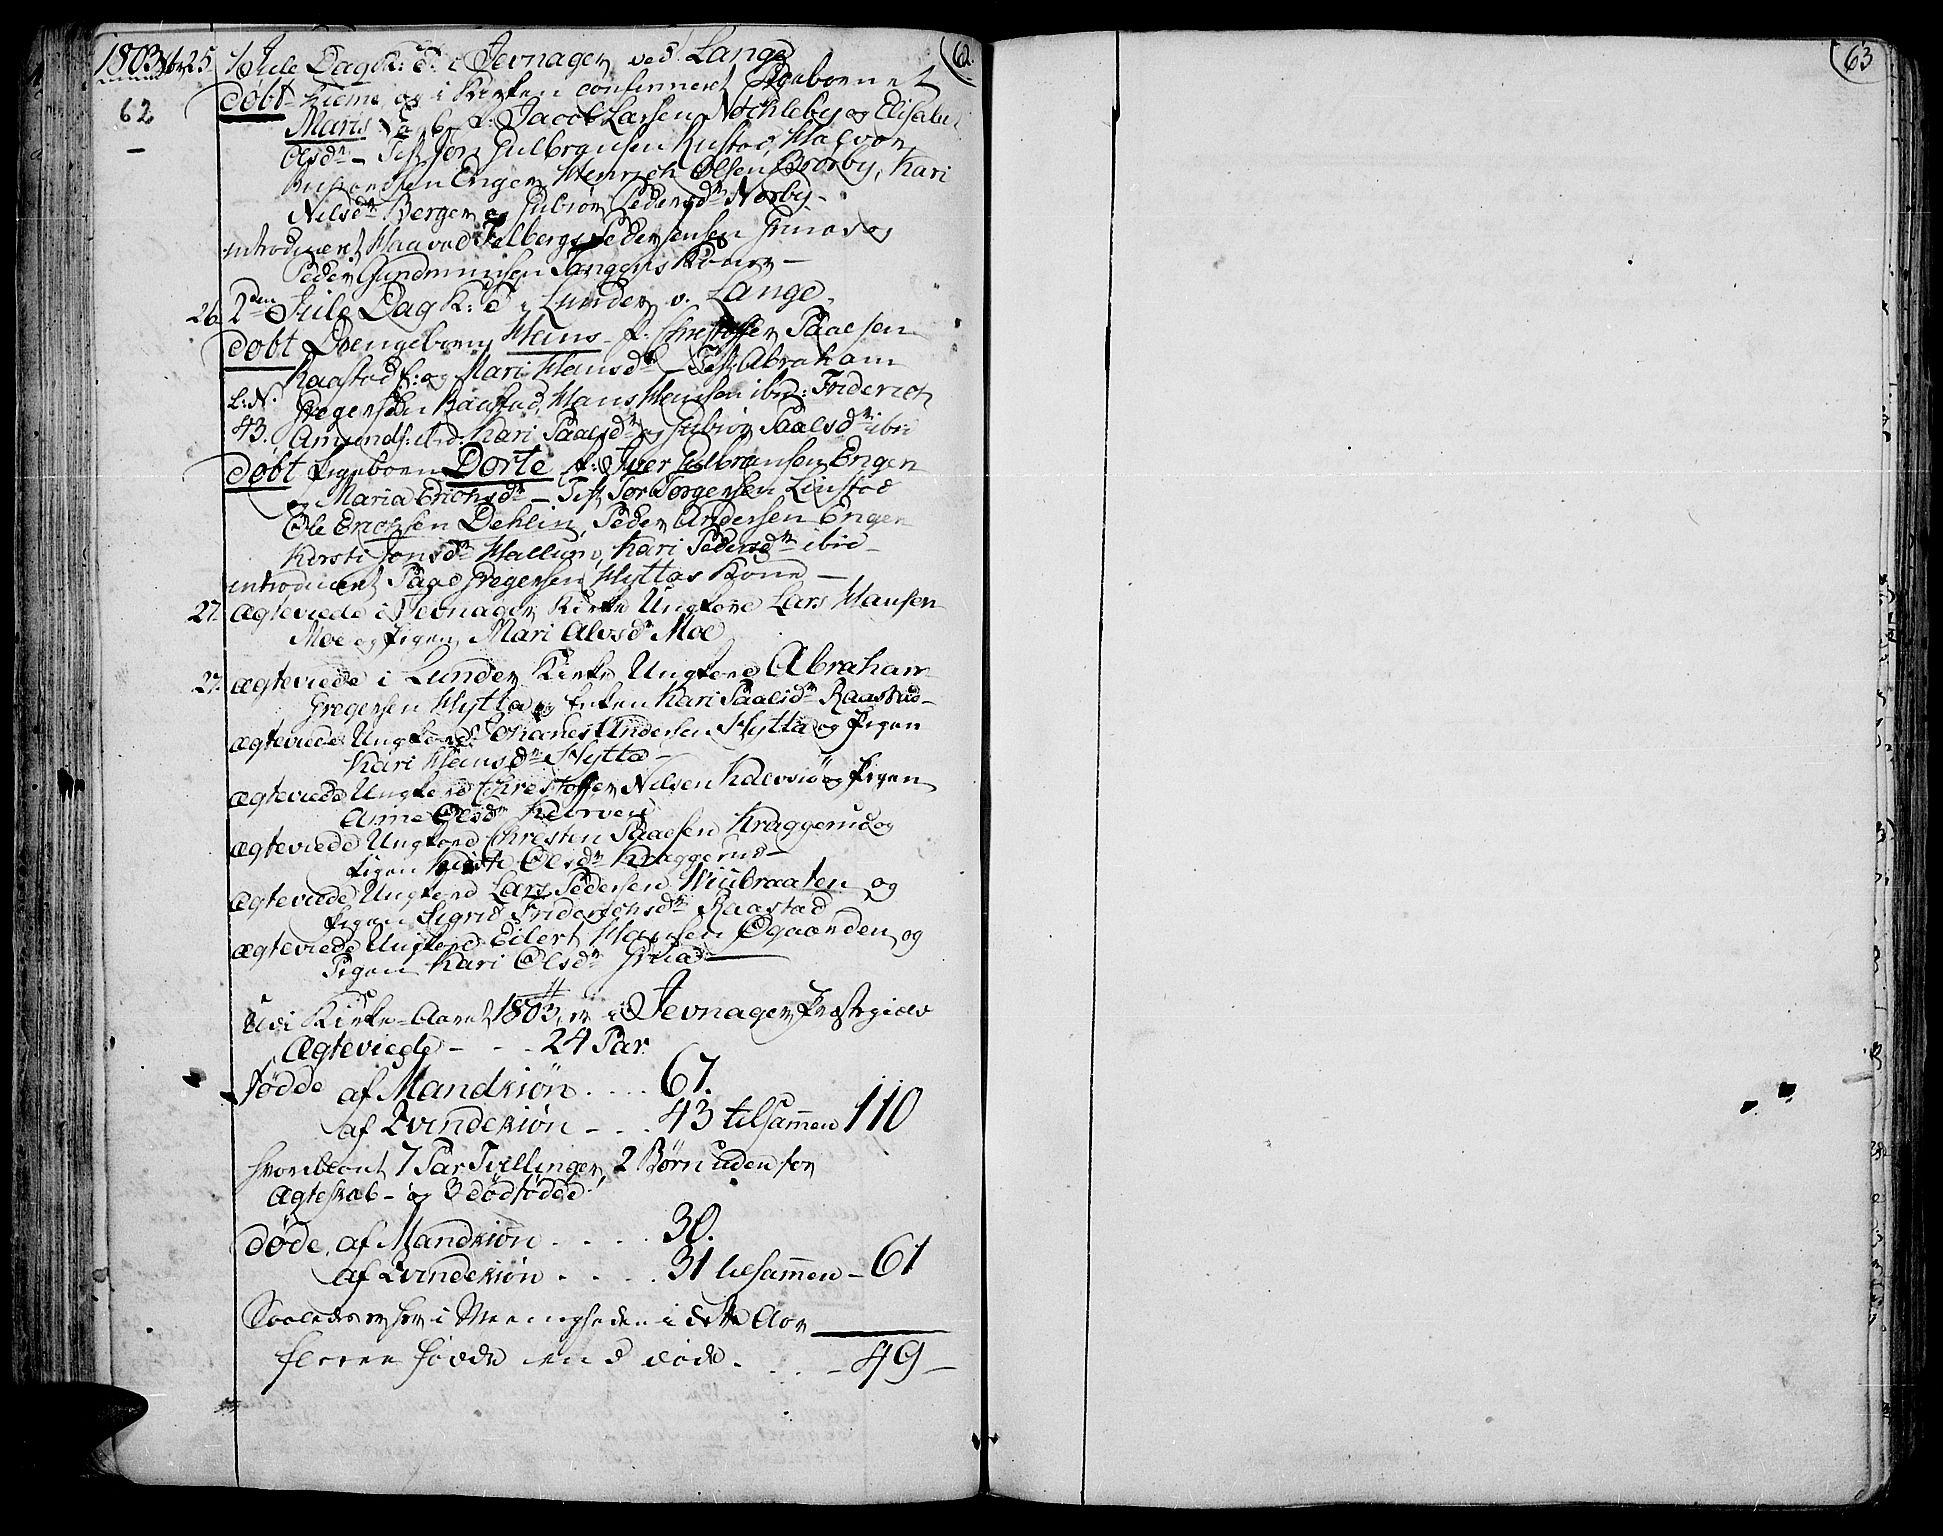 1803 Xbr 25. 1 Jule Dag K: T: i Jevnager ved S. Lange
62
døbt hieme og i Kirken confirmeret Pigebarnet
Maris f: Jacob Larsen Nøchleby og Elisabet
Olsdr – Test Jon Gulbransen Rustad, Halvor
Engen Henrich Olsen Brørby, Kari
Nilsdr Berger og Gubiør Pedersdr Nørby.
introduceret Haavod Pedersen Gruas og
Peder Gundmundsen Tanggens Koner –
26. 2den Jule Dag K: T i Lunder v. Lange.
døbt Drengebarn Hans f. Christoffer Paalsen
Raastad f: og Mari Hansdr – Test Abraham
L: N. Gregersen Raastad, Hans Hansen ibid: Friderich
43. Amunds: ibid. Kari Paalsdr og Gubiør Paalsdr ibid
døbt Pigebarn Dorte f: Iver Gulbransen Engen
og Maria Erichsdr – Test Tor Torgersen Linstad
Ole Erichsen Dehlin, Peder Andersen Engen
Kirsti Jonsdr Hallum, Kari Pedersdr ibid –
introduceret Paal Gregersen Hyttas Kone –
27. Ægteviede i Jevnager Kirke Ungkarl Lars Hansen
Moe og Pigen Mari Alvsdr Moe
27. Ægteviede i Lunder Kirke Ungkarl Abraham
Gregersen Hytta og Enken Kari Paalsdr Raastad –
Ægteviede Ungkarl Johannes Andersen Hytta og Pigen
Kari Hansdr Hytta –
Ægteviede Ungkarl Christoffer Nilsen Kalvsiø og Pigen
Anne Olsdr
Ægteviede Ungkarl Christen Paalsen Kraggerud og
Pigen Olsdr Kraggerud –
Ægteviede Ungkarl Lars Pedersen Wiubraaten og
Pigen Sigrid Friderichsdr Raastad
Ægteviede Ungkarl Eilert Hansen Øgaarden og
Pigen Kari Olsdr Grua –
Udi Kirke-Aaret 1803, er i Jevnager Præstegield
Ægteviede – – – 24 Par
fødde af Mandkiøn . . . . 67.
af Qvindekiøn – . . 43 tilsammen 110
hvoriblant 7 Par Tvillinger, 2 Børn uden for
Ægteskab – og 3 dødfødde.
døde, af Mandkiøn . . . . . 30.
af Qvindekiøn . . . . 31 tilsammen – 61
Saaledes er her i Meenigheden i dette Aar
fleere fødde end døde. . . . – 49 –
62.
63